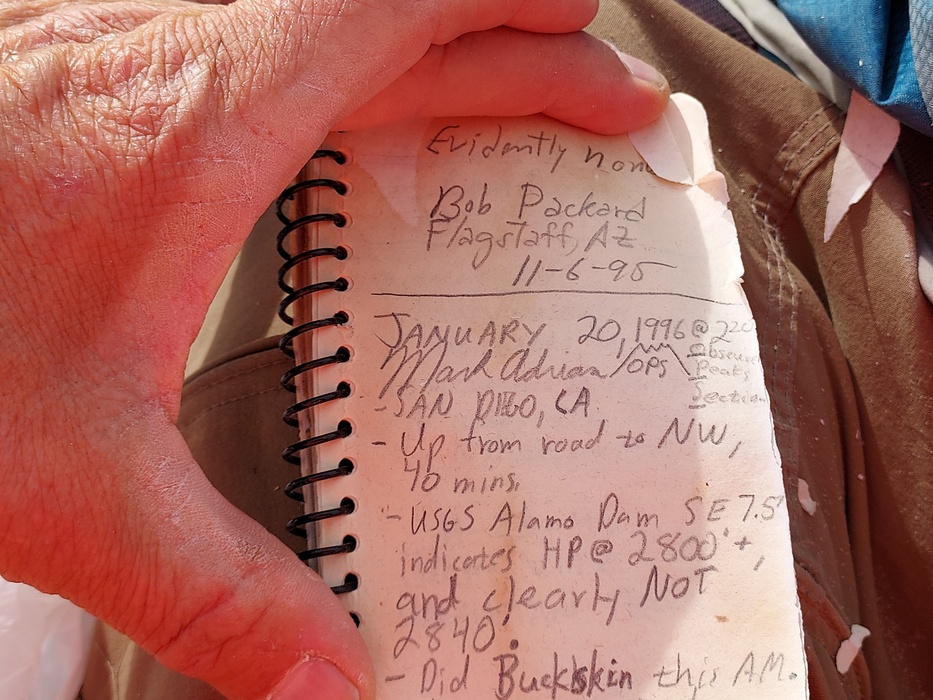 Evidently non
Bob Packard
Flagstaff, AZ
11-6-95
JANUARY 20, 1996 @ 220
Mark Adrian /OPS\ Obscure
Peaks
Section
- SAN DIEGO, CA
- Up from road to NW,
40 mins.
- USGS Alamo Dam SE 7.5'
indicates HP @ 2800'+,
and clearly NOT
2840'.
- Did Buckskin this AM.